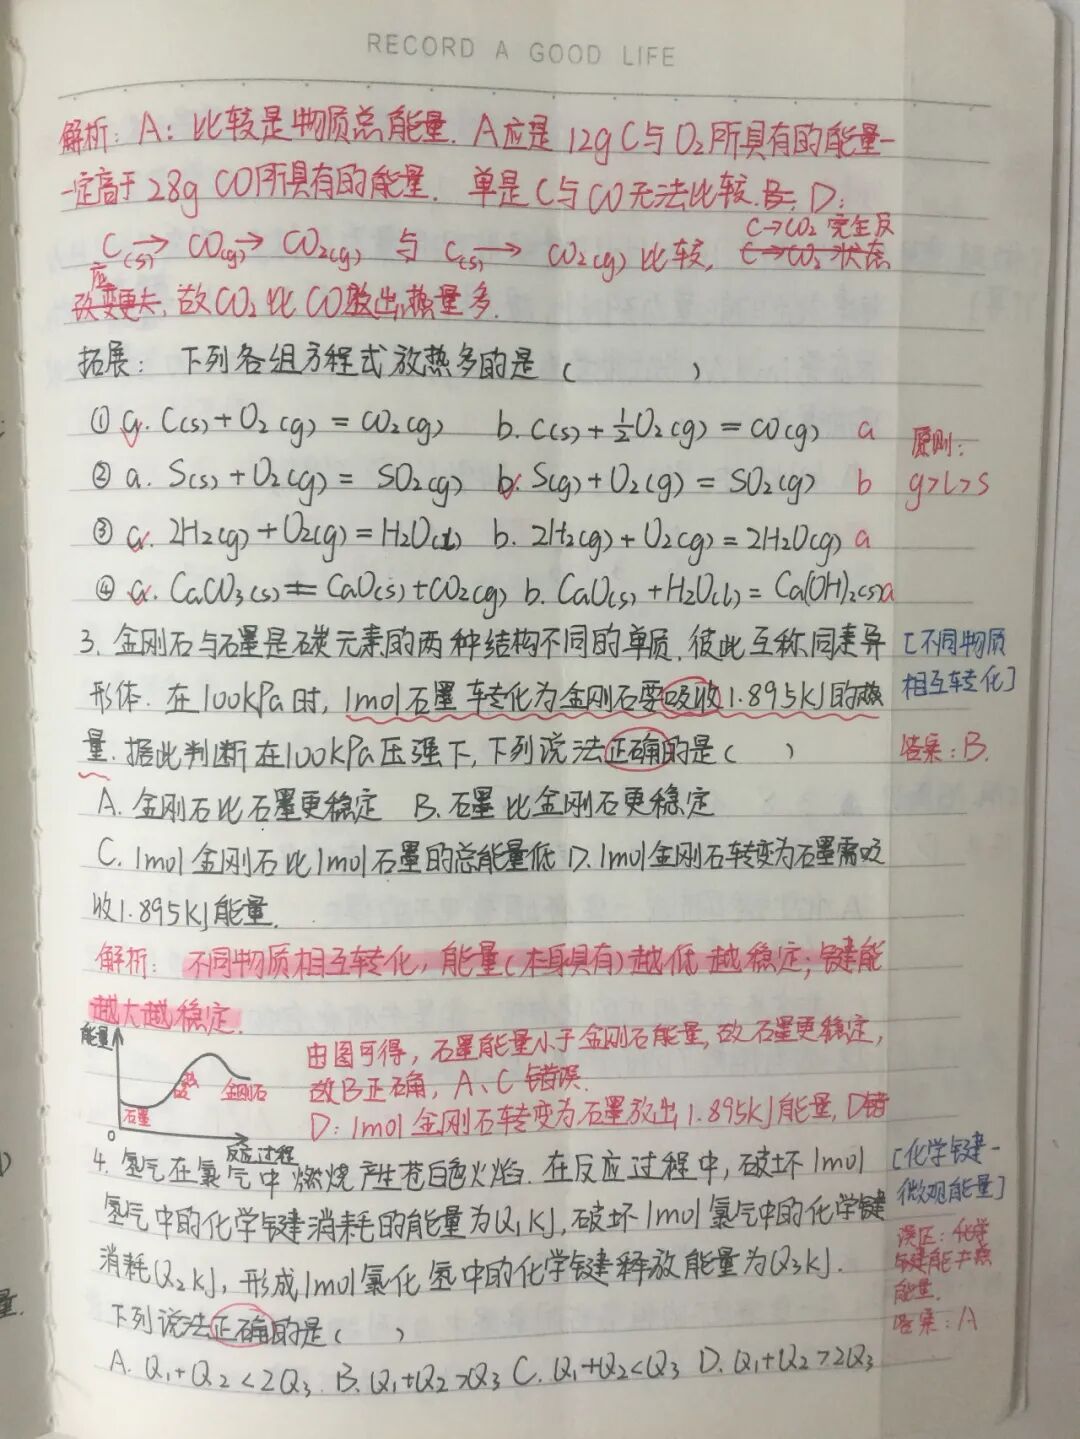 RECORD A GOOD LIFE
解析: A: 比较是物质总能量. A应是12g C与O2所具有的能量一
定高于28g CO所具有的能量. 单是C与CO无法比较. B; D:
C(s)→CO(g)→CO2(g) 与 C(s)→CO2(g) 比较, C→CO2 完全反
C→CO2 状态
应
改变更大, 故CO2比CO放出热量多.
拓展: 下列各组方程式放热多的是( )
① a. C(s)+O2(g)=CO2(g) b. C(s)+½O2(g)=CO(g) a
② a. S(s)+O2(g)=SO2(g) b. S(g)+O2(g)=SO2(g) b
③ a. 2H2(g)+O2(g)=H2O(l) b. 2H2(g)+O2(g)=2H2O(g) a
④ a. CaCO3(s)=CaO(s)+CO2(g) b. CaO(s)+H2O(l)=Ca(OH)2(s) a
原则:
g>l>s
3. 金刚石与石墨是碳元素的两种结构不同的单质, 彼此互称同素异
形体. 在100kPa时, 1mol石墨转化为金刚石要吸收1.895kJ的热
量. 据此判断在100kPa压强下, 下列说法正确的是( )
A. 金刚石比石墨更稳定 B. 石墨比金刚石更稳定
C. 1mol金刚石比1mol石墨的总能量低 D. 1mol金刚石转变为石墨需吸
收1.895kJ能量.
[不同物质
相互转化]
答案: B.
解析: 不同物质相互转化, 能量(本身具有)越低越稳定; 键能
越大越稳定.
能量
石墨
吸热
金刚石
O
反应过程
由图可得, 石墨能量小于金刚石能量, 故石墨更稳定,
故B正确, A、C错误.
D: 1mol金刚石转变为石墨放出1.895kJ能量, D错
4. 氢气在氯气中燃烧产生苍白色火焰. 在反应过程中, 破坏1mol
氢气中的化学键消耗的能量为Q1KJ, 破坏1mol氯气中的化学键
消耗Q2KJ, 形成1mol氯化氢中的化学键释放能量为Q3KJ.
下列说法正确的是( )
A. Q1+Q2<2Q3 B. Q1+Q2>Q3 C. Q1+Q2<Q3 D. Q1+Q2>2Q3
[化学键-
微观能量]
误区: 化学
键能≠热
能量.
答案: A
量.